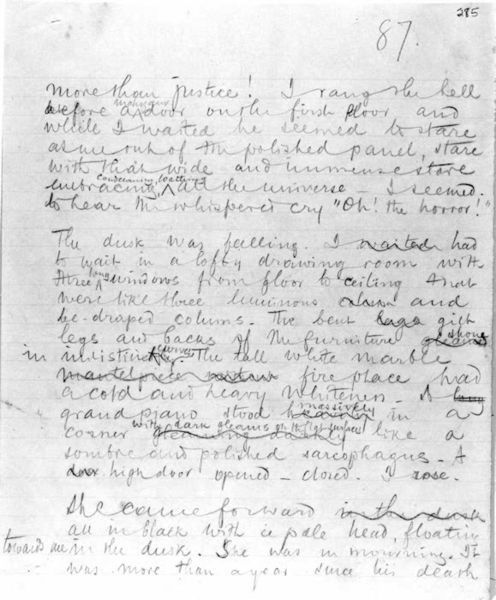 285
87.
more than justice! I rang the bell
before a mahogany door on the first floor and
while I waited he seemed to stare
at me out of the polished panel, stare
with that wide and immense stare
embracing, condemning, loathing all the universe - I seemed
to hear the whispered cry "Oh! the horror!"
The dusk was falling. I waited had
to wait in a lofty drawing room with
three long windows from floor to ceiling that
were like three luminous and
be-draped colums. The bent legs gilt
legs and backs of the furniture shone
in indistinct curves. The tall white marble
mantelpiece fire place had
a cold and heavy whiteness. A
grand piano stood massively in a
corner with dark gleams on the flat surfaces gleaming darkly like a
sombre and polished sarcophagus. A
high door opened - closed. I rose.
She came forward in the dusk
all in black with a pale head, floating
towards me in the dusk. She was in mourning. It
was more than a year since his death